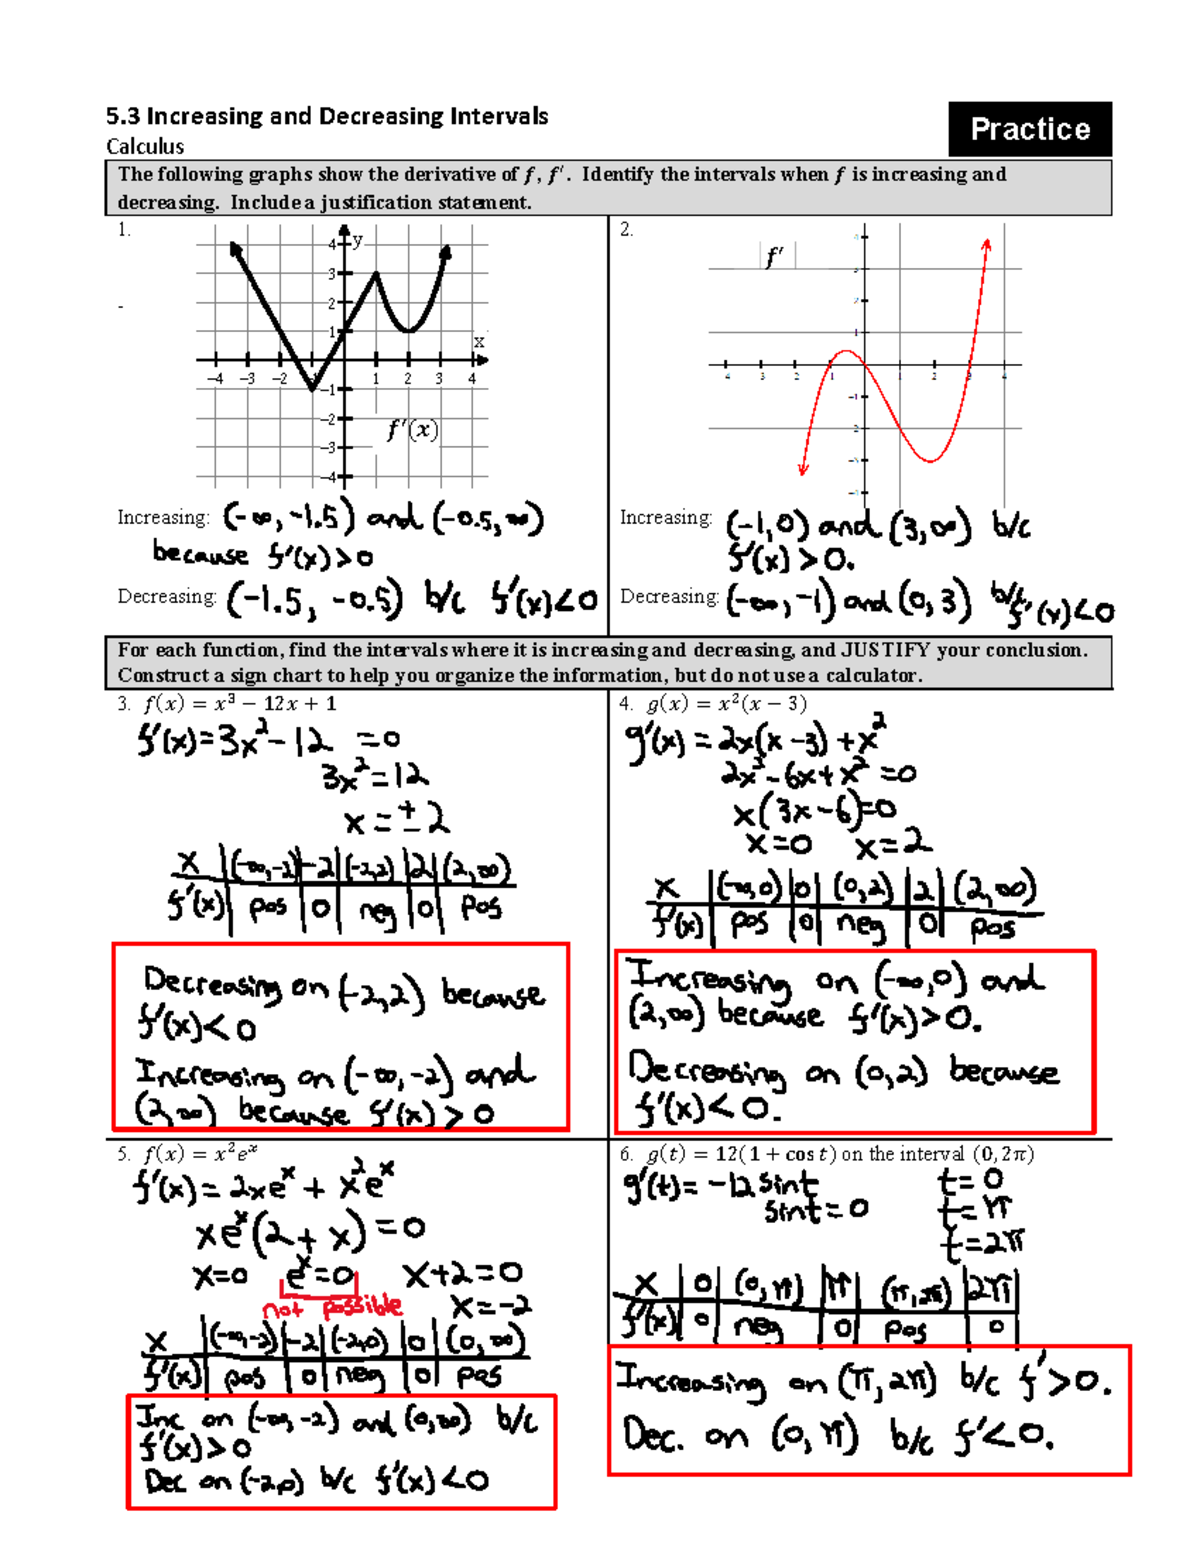 5.3 Increasing and Decreasing Intervals
Practice
Calculus
The following graphs show the derivative of f, f′. Identify the intervals when f is increasing and
decreasing. Include a justification statement.
1.
y
x
4
3
2
1
-4 -3 -2 1 2 3 4
-1
-2
-3
-4
f′(x)
Increasing: (-∞, -1.5) and (-0.5, ∞)
because f′(x) > 0
Decreasing: (-1.5, -0.5) b/c f′(x) < 0
2.
f′
Increasing: (-1, 0) and (3, ∞) b/c
f′(x) > 0.
Decreasing: (-∞, -1) and (0, 3) b/c f′(x) < 0
For each function, find the intervals where it is increasing and decreasing, and JUSTIFY your conclusion.
Construct a sign chart to help you organize the information, but do not use a calculator.
3. f(x) = x³ − 12x + 1
f′(x) = 3x² - 12 = 0
3x² = 12
x = ± 2
x (-∞, -2) -2 (-2, 2) 2 (2, ∞)
f′(x) pos 0 neg 0 pos
Decreasing on (-2, 2) because
f′(x) < 0
Increasing on (-∞, -2) and
(2, ∞) because f′(x) > 0
4. g(x) = x²(x − 3)
g′(x) = 2x(x - 3) + x²
2x² - 6x + x² = 0
x(3x - 6) = 0
x = 0 x = 2
x (-∞, 0) 0 (0, 2) 2 (2, ∞)
f′(x) pos 0 neg 0 pos
Increasing on (-∞, 0) and
(2, ∞) because f′(x) > 0.
Decreasing on (0, 2) because
f′(x) < 0.
5. f(x) = x²eˣ
f′(x) = 2xeˣ + x²eˣ
xeˣ(2 + x) = 0
x = 0 eˣ = 0 x + 2 = 0
not possible x = -2
x (-∞, -2) -2 (-2, 0) 0 (0, ∞)
f′(x) pos 0 neg 0 pos
Inc on (-∞, -2) and (0, ∞) b/c
f′(x) > 0
Dec on (-2, 0) b/c f′(x) < 0
6. g(t) = 12(1 + cos t) on the interval (0, 2π)
g′(t) = -12 sint t = 0
sint = 0 t = π
t = 2π
x 0 (0, π) π (π, 2π) 2π
f′(x) 0 neg 0 pos 0
Increasing on (π, 2π) b/c f′ > 0.
Dec. on (0, π) b/c f′ < 0.